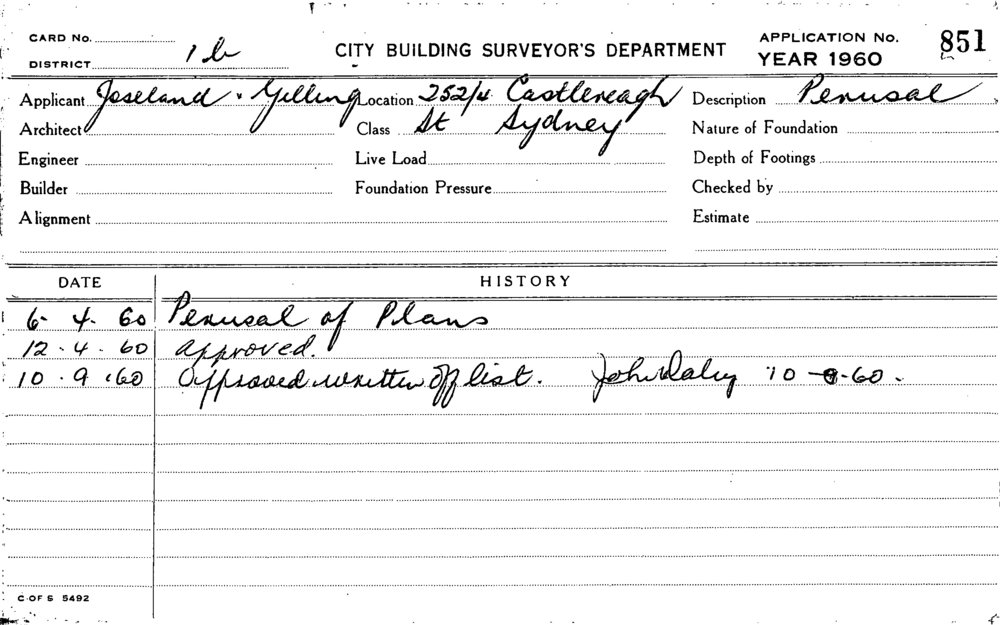 CARD No.
DISTRICT 1b
CITY BUILDING SURVEYOR'S DEPARTMENT
APPLICATION No. 851
YEAR 1960
Applicant Joseland & Gilling Location 252/4 Castlereagh Description Perusal
Architect Class St Sydney Nature of Foundation
Engineer Live Load Depth of Footings
Builder Foundation Pressure Checked by
Alignment Estimate
DATE HISTORY
6- 4- 60 Perusal of Plans
12 - 4 - 60 approved.
10 . 9 . 60 Approved written off list. John Daley 10 -9-60.
C OF S 5492